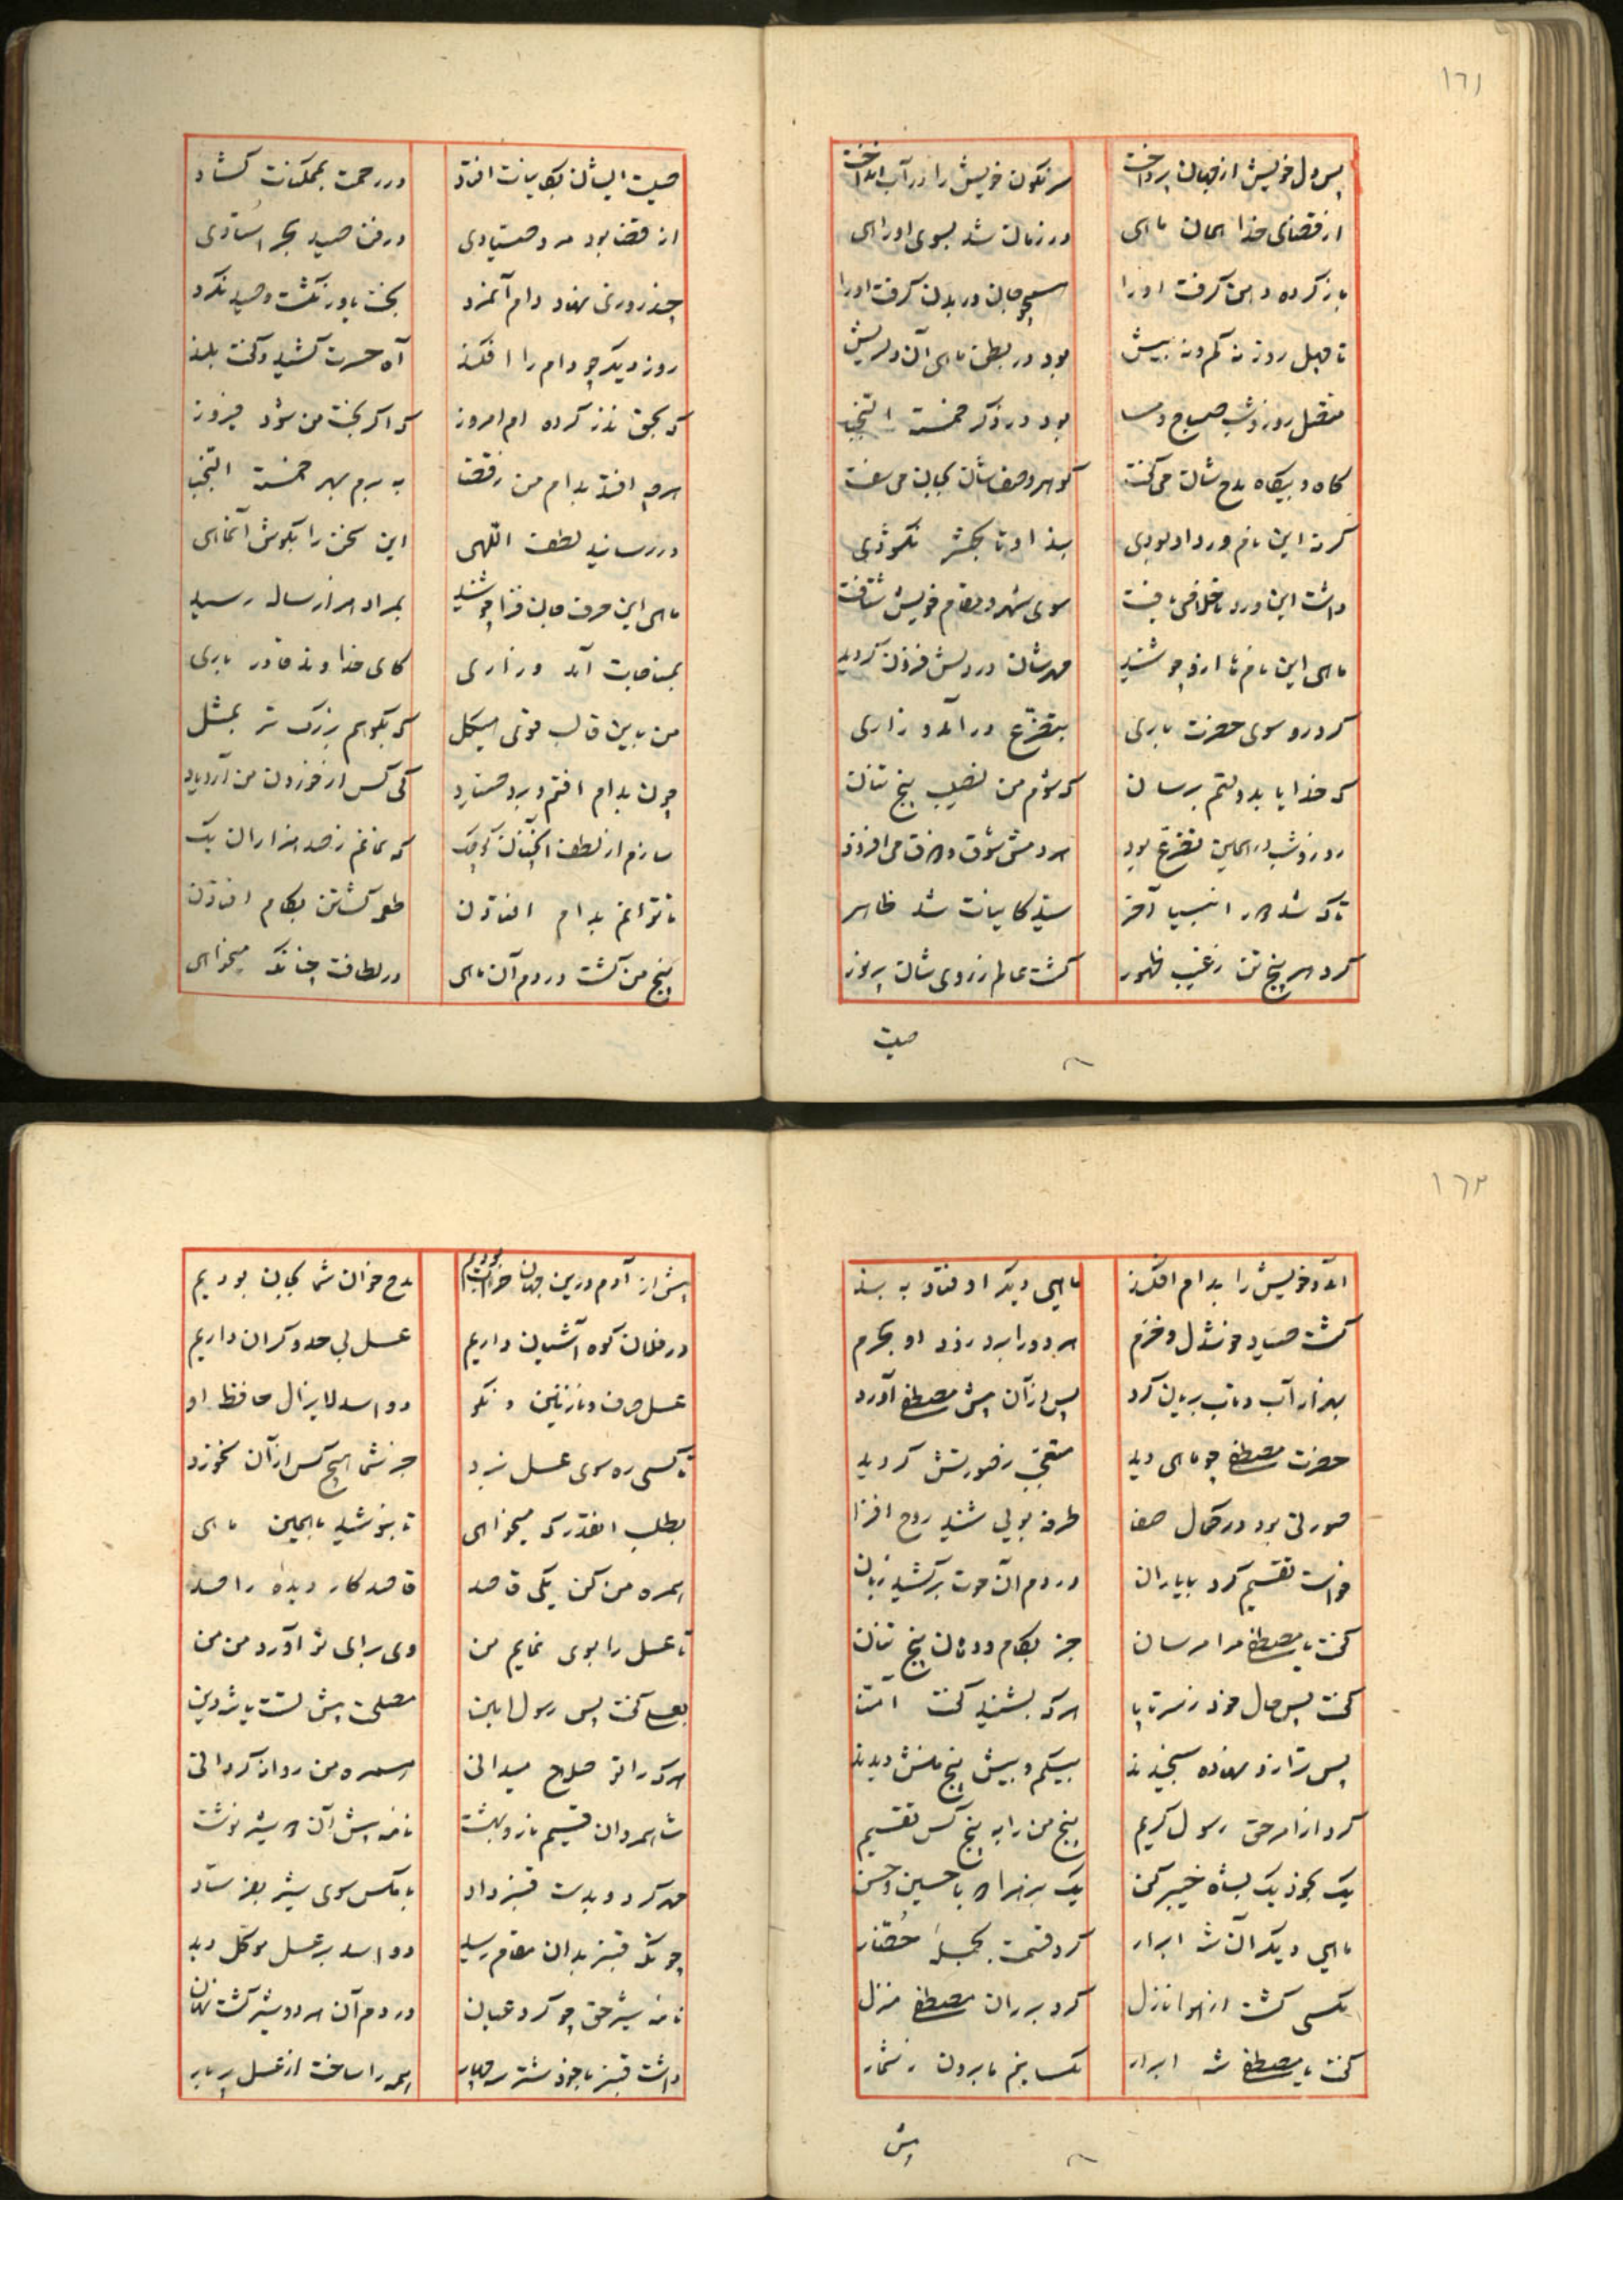 ١٦١
پس دل خویش از جهان پرداخت سرنکون خویش را در آب انداخت
از قضای خدا همان ماهی در زمان شد بسوی او راهی
باز کرده دهن گرفت او را همچو جان در بدن گرفت او را
تا چهل روز نه کم و نه بیش بود در بطن ماهی آن دلریش
متصل روز و شب صباح و مسا بود در ذکر خمسة النجبا
کاه و بیکاه مدح شان می کفت کوهر وصف شان بجان می سفت
کر نه این نام ورد او بودی بند او تا بحشر نکشودی
داشت این ورد تا خلاصی یافت سوی شهر و مقام خویش شتافت
ماهی این نام ها ازو چو شنید مهر شان در دلش فزون کردید
کرد رو سوی حضرت باری بتضرع در آمد و زاری
که خدایا بدولتم برسان که شوم من نصیب پنج تنان
روز و شب در همین تضرع بود هر دمش شوق می افزود
تا که شد انبیا آخر سید کاینات شد ظاهر
کرد هر پنج تن ز غیب ظهور کشت عالم ز روی شان پر نور
صیت
صیت ایشان بکاینات افتاد در رحمت بممکنات کشاد
از قضا بود مرد صیادی در فن صید بحر استادی
چند روزی نهاد دام آنمرد بخت یاور نکشت و صید نکرد
روز دیکر چو دام را افکند آه حسرت کشید و کفت بلند
که بحق نذر کرده ام امروز که اکر بخت من شود فیروز
هرچه افتد بدام من ز قضا به برم بهر خمسة النجبا
در رسانید لطف اللهی این سخن را بکوش آنماهی
ماهی این حرف جان فزا چو شنید بمراد هزار ساله رسید
بمناجات آمد و زاری کای خداوند قادر باری
من باین قالب قوی هیکل که بکوهم بزرک تر بمثل
چون بدام افتم و برد صیاد کی کس از خوردن من آرد یاد
سازم از لطف آنچنان کوچک که نمانم ز صد هزاران یک
تا توانم بدام افتادن طعمه کشتن بکام افتادن
پنج من کشت در دم آن ماهی در لطافت چنانکه میخواهی
١٦٢
آمد و خویش را بدام افکند ماهی دیکر اوفتاد به بند
کشت صیاد خوشدل و خرم هر دو را برد نزد او بحرم
بهزار آب و تاب بریان کرد پس از آن پیش مصطفی آورد
حضرت مصطفی چو ماهی دید متعجب ز صورتش کردید
صورتی بود در کمال صفا طرفه بویی شنید روح افزا
خواست تقسیم کرد با یاران در دم آن حوت برکشید زبان
کفت یا مصطفی مرا مرسان جز بکام و دهان پنج تنان
کفت پس حال خود ز سر تا پا هر که بشنید کفت آمنا
پس ترازو نهاده سنجیدند بیکم و بیش پنج منش دیدند
کرد از امر حق رسول کریم پنج من را به پنج کس تقسیم
یک بخود یک بشاه خیبر کن یک بزهرا با حسین و حسن
ماهی دیکر آن شه ابرار کرد قسمت بجمله حضار
مکسی کشت از هوا نازل کرد بر ران مصطفی منزل
کفت یا مصطفی شه ابرار مکسانیم ما برون ز شمار
پیش
پیش از آدم درین جهان بودیم مدح خوان شما بجان بودیم
در فلان کوه آشیان داریم عسل بی حد و کران داریم
عسل صاف و نازنین و نکو دو اسد لایزال حافظ او
تا کسی ره سوی عسل نبرد جز شما هیچ کس از آن نخورد
بطلب انقدر که میخواهی تا بنوشید با چنین ماهی
همره من کن یکی قاصد قاصد کار دیده راصد
تا عسل را بوی نمایم من وی برای تو آورد من من
کفت پس رسول امین مصلحت پیش تست یا شه دین
هر که را تو صلاح میدانی همره من روانه کردانی
شاه مردان قسیم نار و بهشت نامه پیش آن شیر نوشت
مهر کرد و بدست قنبر داد با مکس سوی شیر بفرستاد
چونکه قنبر بدان مقام رسید دو اسد بر عسل موکل دید
نامه شیر حق چو کرد عیان در دم آن هر دو شیر کشت نهان
داشت قنبر با خود شتر سه چهار همه را ساخت از عسل پر بار